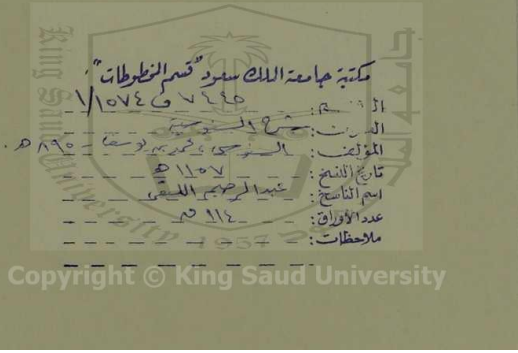 مكتبة جامعة الملك سعود "قسم المخطوطات"
الرقم: ٧٤٤٥ ف ١/١٥٧٤
العنوان: شرح السنوسية
المؤلف: السنوسي، محمد بن يوسف - ٨٩٥ هـ.
تاريخ النسخ: ١١٥٧ هـ
اسم الناسخ: عبدالرحيم
عدد الأوراق: ١١٤ ق
ملاحظات:
King Saud University
1957
Copyright © King Saud University